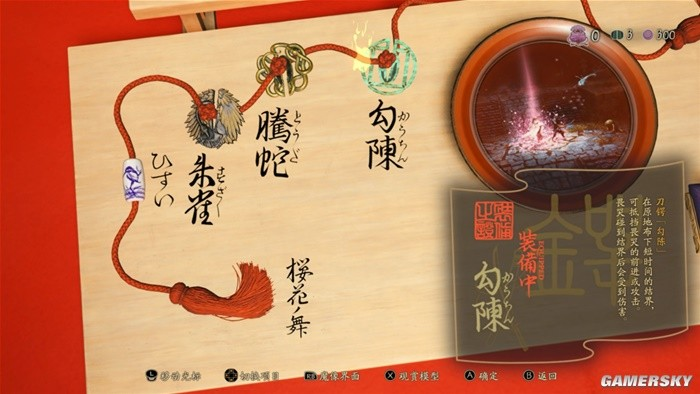 0 3 300
勾陳
かうちん
騰蛇
とうだ
朱雀
すざく
ひすい
桜花ノ舞
刀锷「勾陈」
在原地布下短时间的结界，
可抵挡畏哭的前进或攻击。
畏哭碰到结界后会受到伤害。
装備中
EQUIPPED
勾陳
かうちん
L 移动光标 切换项目 魔像界面 X 观赏模型 A 确定 B 返回
GAMERSKY